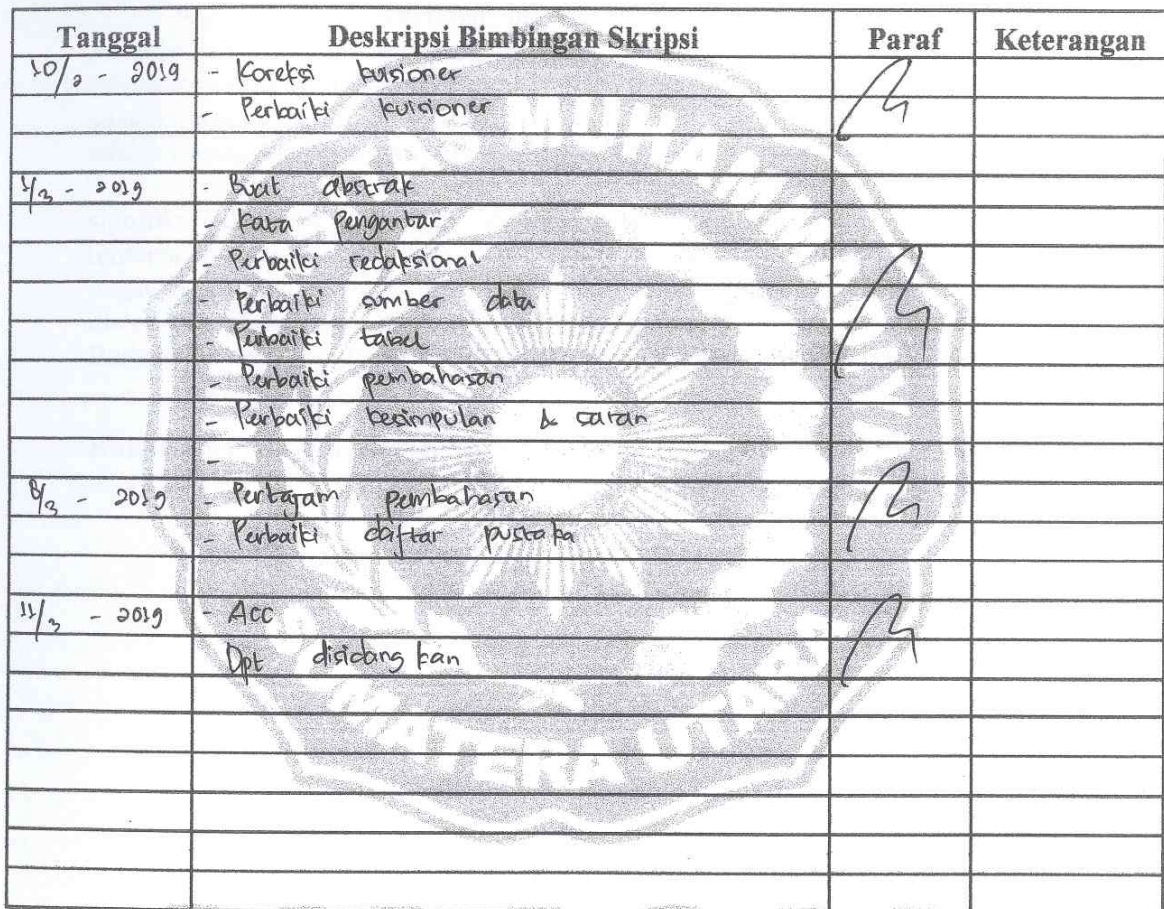 Tanggal Deskripsi Bimbingan Skripsi Paraf Keterangan
10/2 - 2019 - Koreksi kuisioner
- Perbaiki kuisioner
1/3 - 2019 - Buat abstrak
- Kata Pengantar
- Perbaiki redaksional
- Perbaiki sumber data
- Perbaiki tabel
- Perbaiki pembahasan
- Perbaiki kesimpulan & saran
-
8/3 - 2019 - Pertajam pembahasan
- Perbaiki daftar pustaka
11/3 - 2019 - Acc
Dpt disidangkan
MUHAMMADIYAH
SUMATERA UTARA